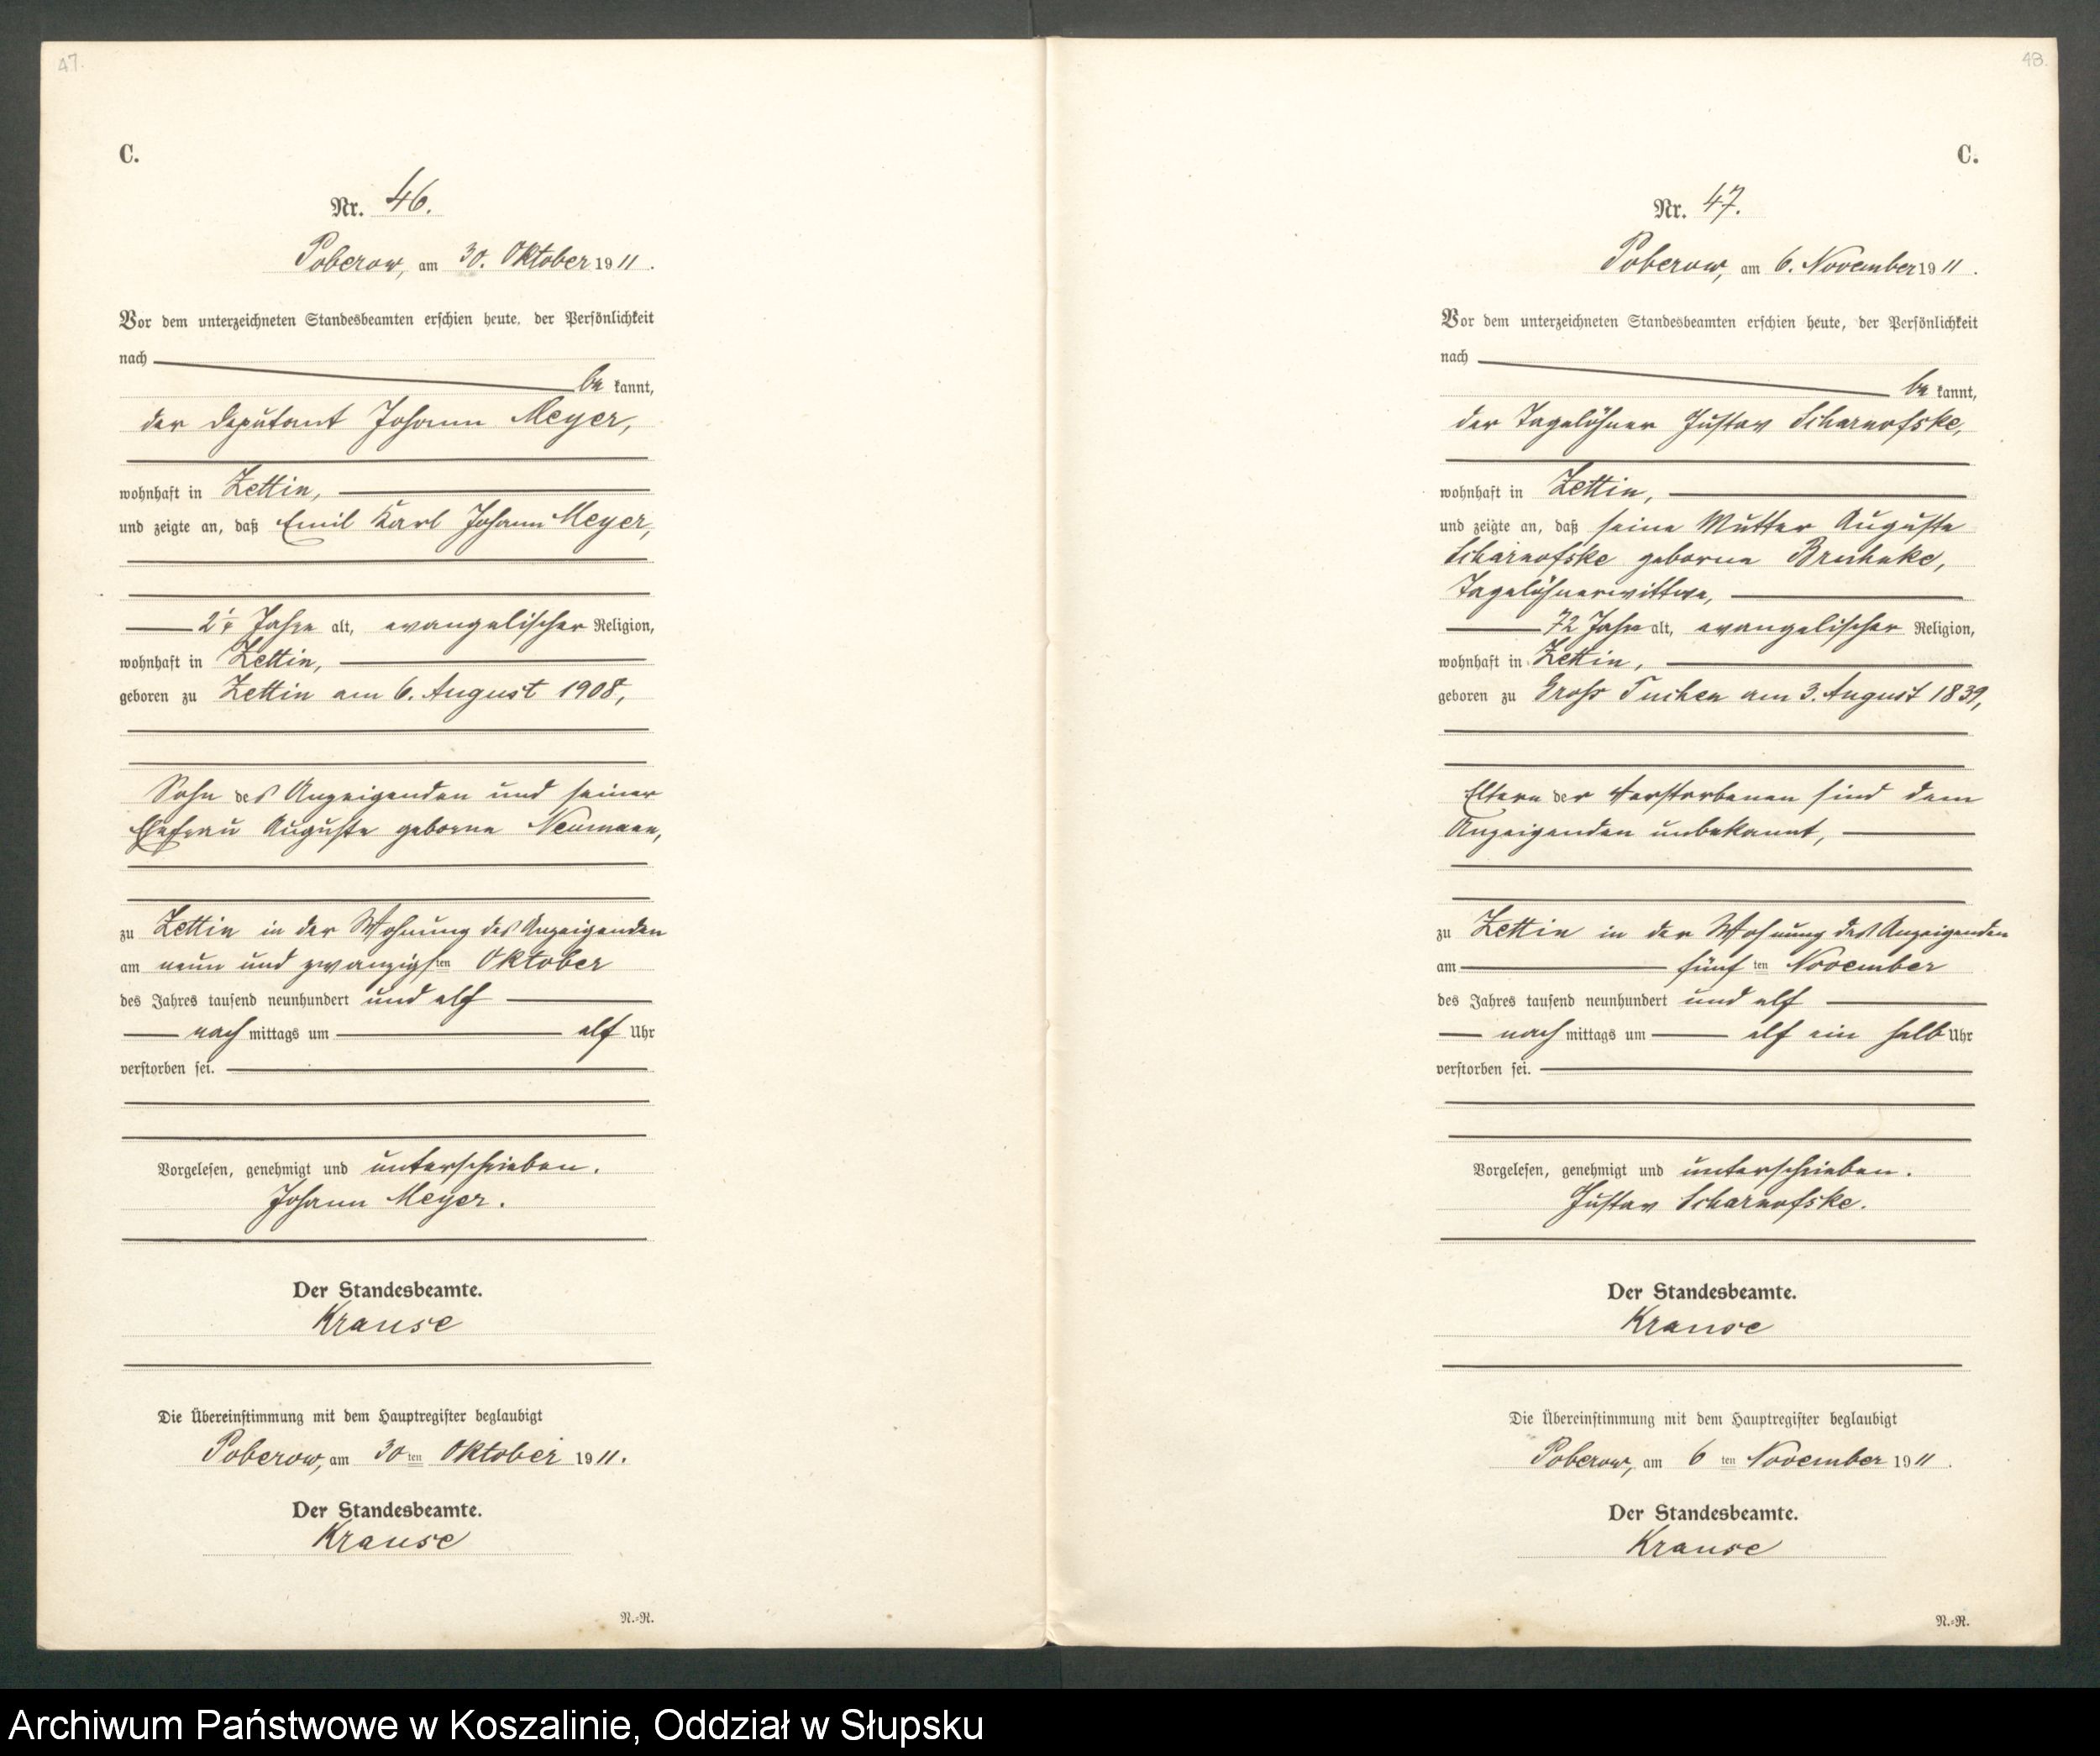 47.
C.
Nr. 46.
Poberow, am 30. Oktober 1911.
Vor dem unterzeichneten Standesbeamten erschien heute, der Persönlichkeit
nach
be kannt,
der Deputant Johann Meyer,
wohnhaft in Zettin,
und zeigte an, daß Emil Karl Johann Meyer,
Jahre alt, evangelischer Religion,
wohnhaft in Zettin,
geboren zu Zettin am 6. August 1908,
Sohn des Anzeigenden und seiner
Ehefrau Auguste geborne Neumann,
zu Zettin in der Wohnung des Anzeigenden
am neun und zwanzigsten Oktober
des Jahres tausend neunhundert und elf
nach mittags um elf Uhr
verstorben sei.
Vorgelesen, genehmigt und unterschrieben.
Johann Meyer.
Der Standesbeamte.
Krause
Die Übereinstimmung mit dem Hauptregister beglaubigt
Poberow, am 30ten Oktober 1911.
Der Standesbeamte.
Krause
N.-R.
48.
C.
Nr. 47.
Poberow, am 6. November 1911.
Vor dem unterzeichneten Standesbeamten erschien heute, der Persönlichkeit
nach
be kannt,
der Tagelöhner Gustav Scharnofske,
wohnhaft in Zettin,
und zeigte an, daß seine Mutter Auguste
Scharnofske geborne
Tagelöhnerwittwe,
72 Jahre alt, evangelischer Religion,
wohnhaft in Zettin,
geboren zu Groß Tuchen am 3. August 1839,
Eltern der Verstorbenen sind dem
Anzeigenden unbekannt,
zu Zettin in der Wohnung des Anzeigenden
am fünf ten November
des Jahres tausend neunhundert und elf
nach mittags um elf ein halb Uhr
verstorben sei.
Vorgelesen, genehmigt und unterschrieben.
Gustav Scharnofske.
Der Standesbeamte.
Krause
Die Übereinstimmung mit dem Hauptregister beglaubigt
Poberow, am 6 ten November 1911.
Der Standesbeamte.
Krause
N.-R.
Archiwum Państwowe w Koszalinie, Oddział w Słupsku